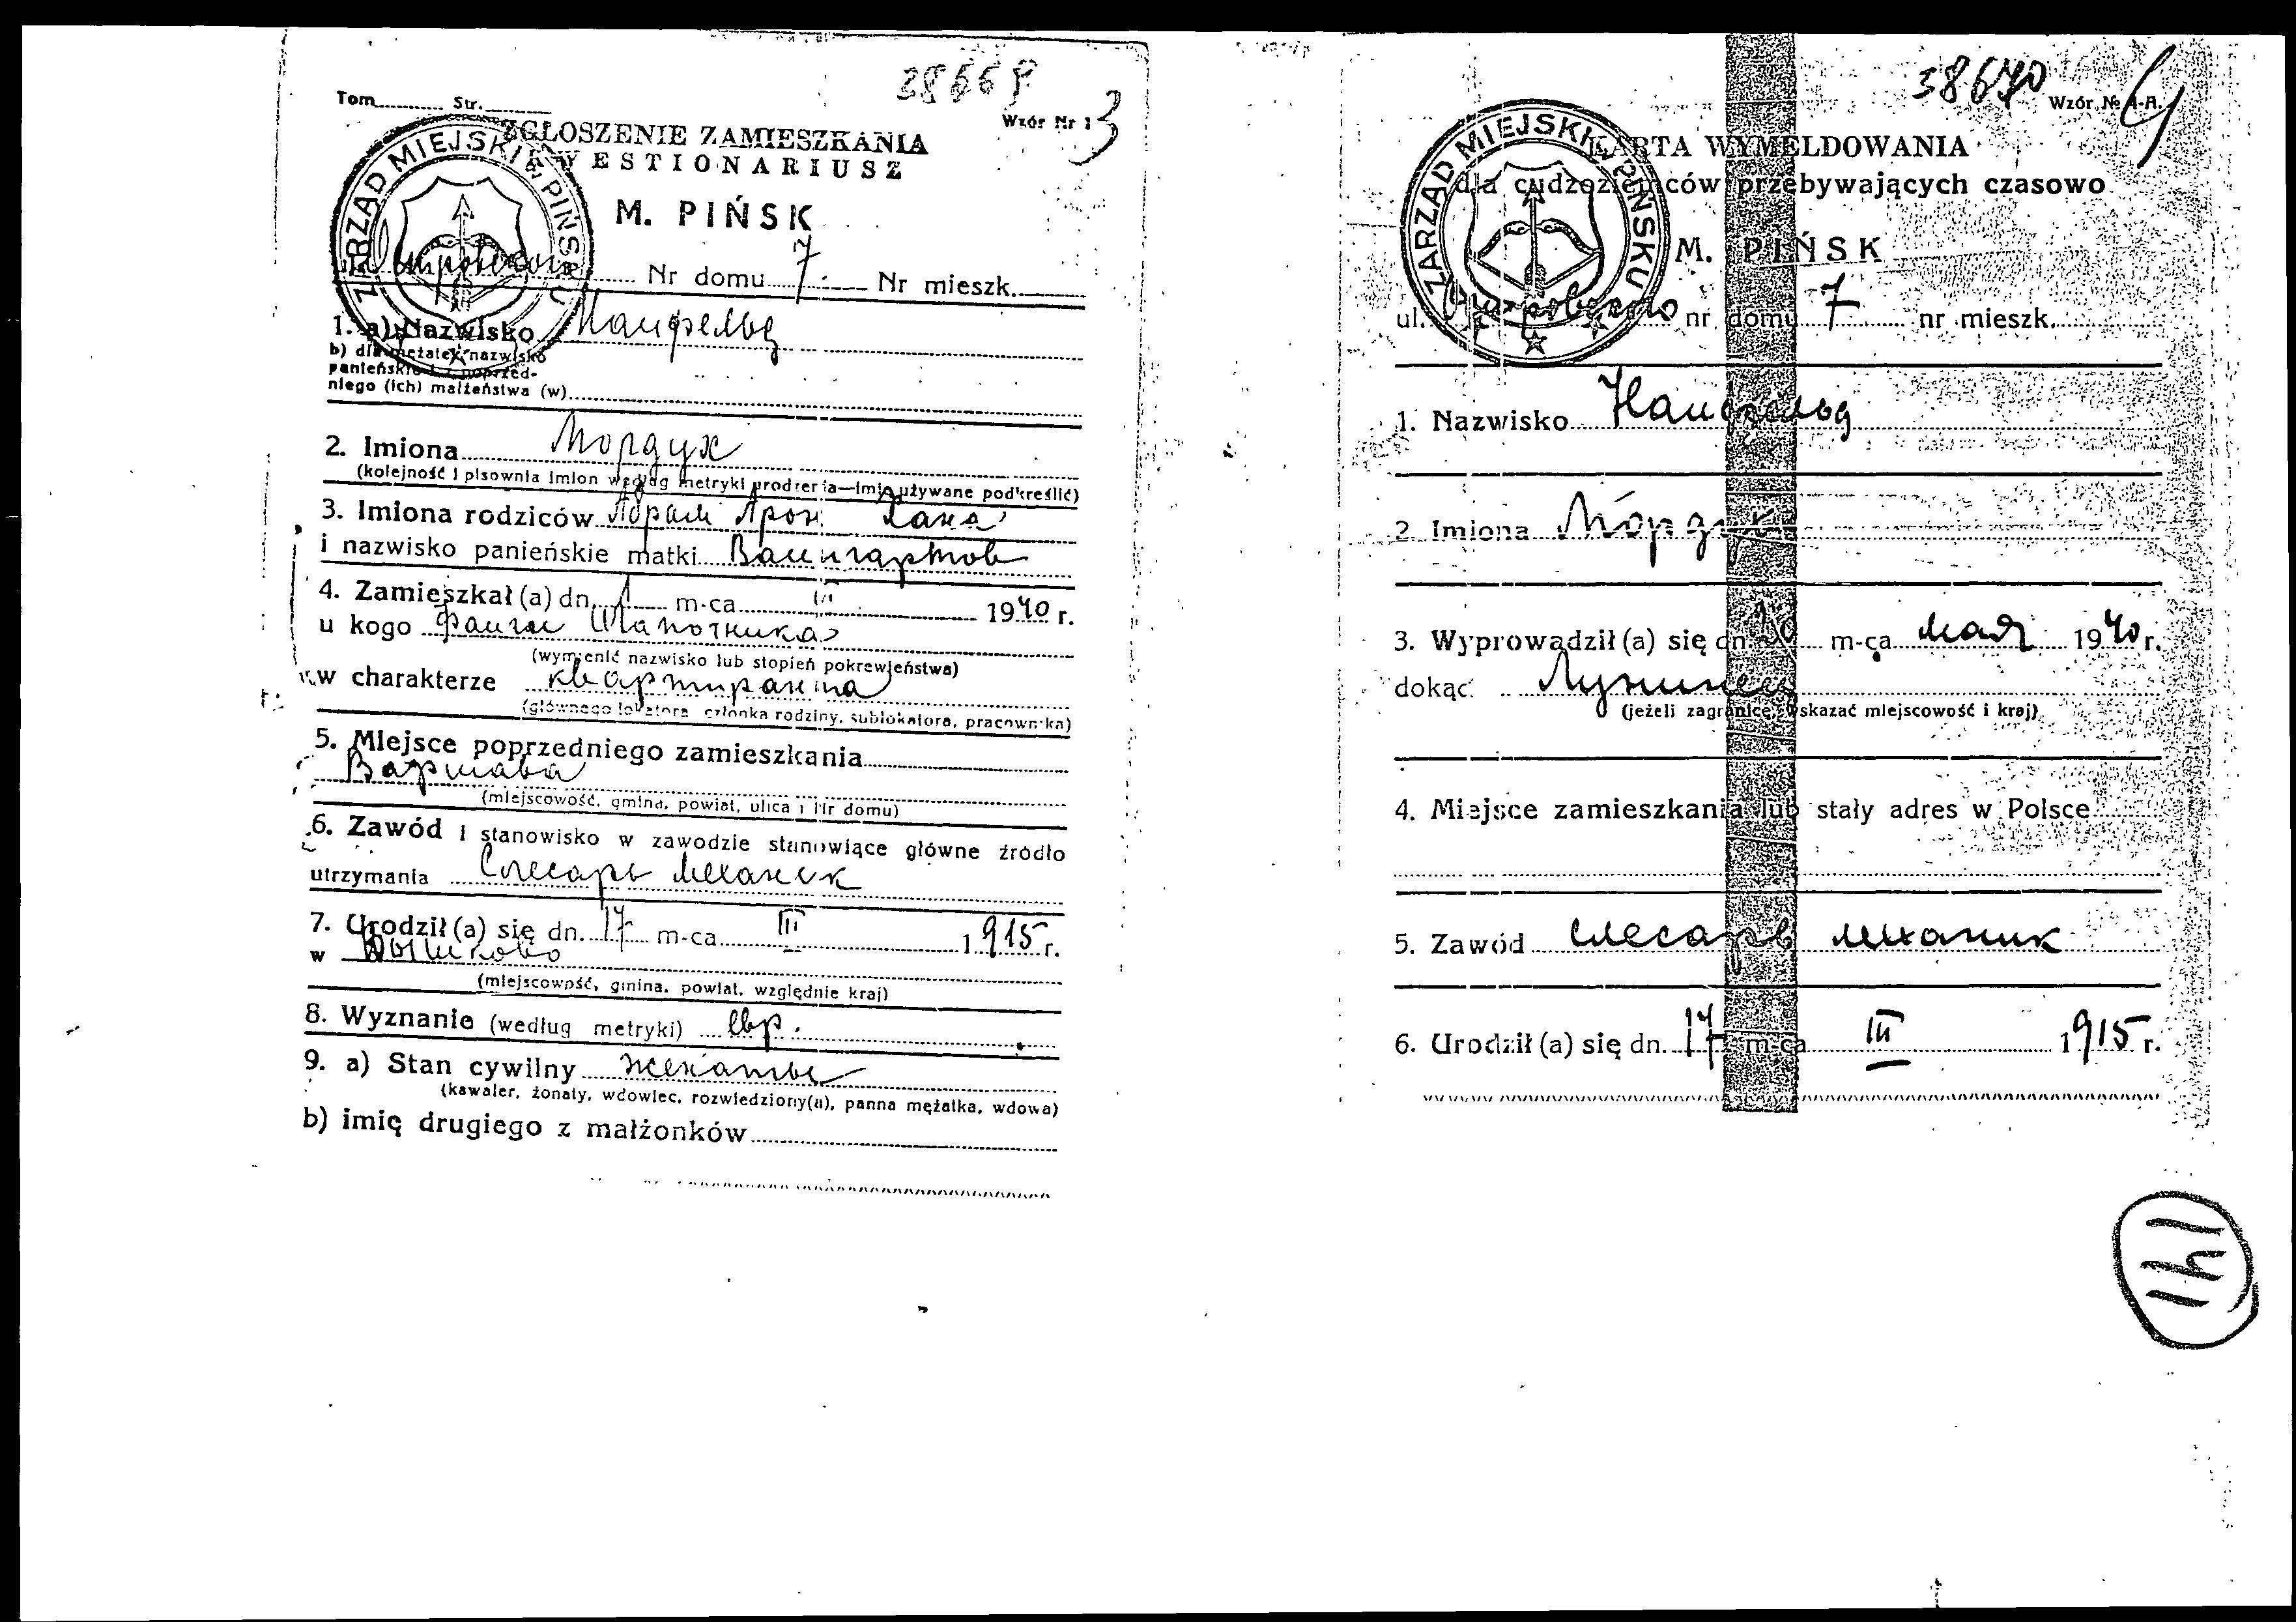 38669
Tom Str.
Wzór Nr 1
3
ZGŁOSZENIE ZAMIESZKANIA
KWESTIONARIUSZ
ZARZĄD MIEJSKI w PIŃSKU
M. PIŃSK
Nr domu 7 Nr mieszk.
1. a) Nazwisko
b) dla mężatek nazwisko
panieńskie i z poprzed-
niego (ich) małżeństwa (w)
2. Imiona Мордух
(kolejność i pisownia imion według metryki urodzenia—imię używane podkreślić)
3. Imiona rodziców Абрам Арон Хана
i nazwisko panieńskie matki
4. Zamieszkał (a) dn. 1 m-ca 1940 r.
u kogo
(wymienić nazwisko lub stopień pokrewieństwa)
w charakterze квартиранта
(głównego lokatora członka rodziny, sublokatora, pracownika)
5. Miejsce poprzedniego zamieszkania
Варшава
(miejscowość, gmina, powiat, ulica i Nr domu)
6. Zawód i stanowisko w zawodzie stanowiące główne źródło
utrzymania Слесарь механик
7. Urodził (a) się dn. 17 m-ca III 1915 r.
w
(miejscowość, gmina, powiat, względnie kraj)
8. Wyznanie (według metryki) евр.
9. a) Stan cywilny женатый
(kawaler, żonaty, wdowiec, rozwiedziony(a), panna mężatka, wdowa)
b) imię drugiego z małżonków
38670
Wzór № 4-A.
4
KARTA WYMELDOWANIA
dla cudzoziemców przebywających czasowo
ZARZĄD MIEJSKI w PIŃSKU
M. PIŃSK
ul. nr domu 7 nr mieszk.
1. Nazwisko
2. Imiona Мордух
3. Wyprowadził (a) się dn. m-ca мая 1940 r.
dokąd Лунинец
(jeżeli zagranicę, wskazać miejscowość i kraj)
4. Miejsce zamieszkania lub stały adres w Polsce
5. Zawód слесарь механик
6. Urodził (a) się dn. 17 m-ca III 1915 r.
141